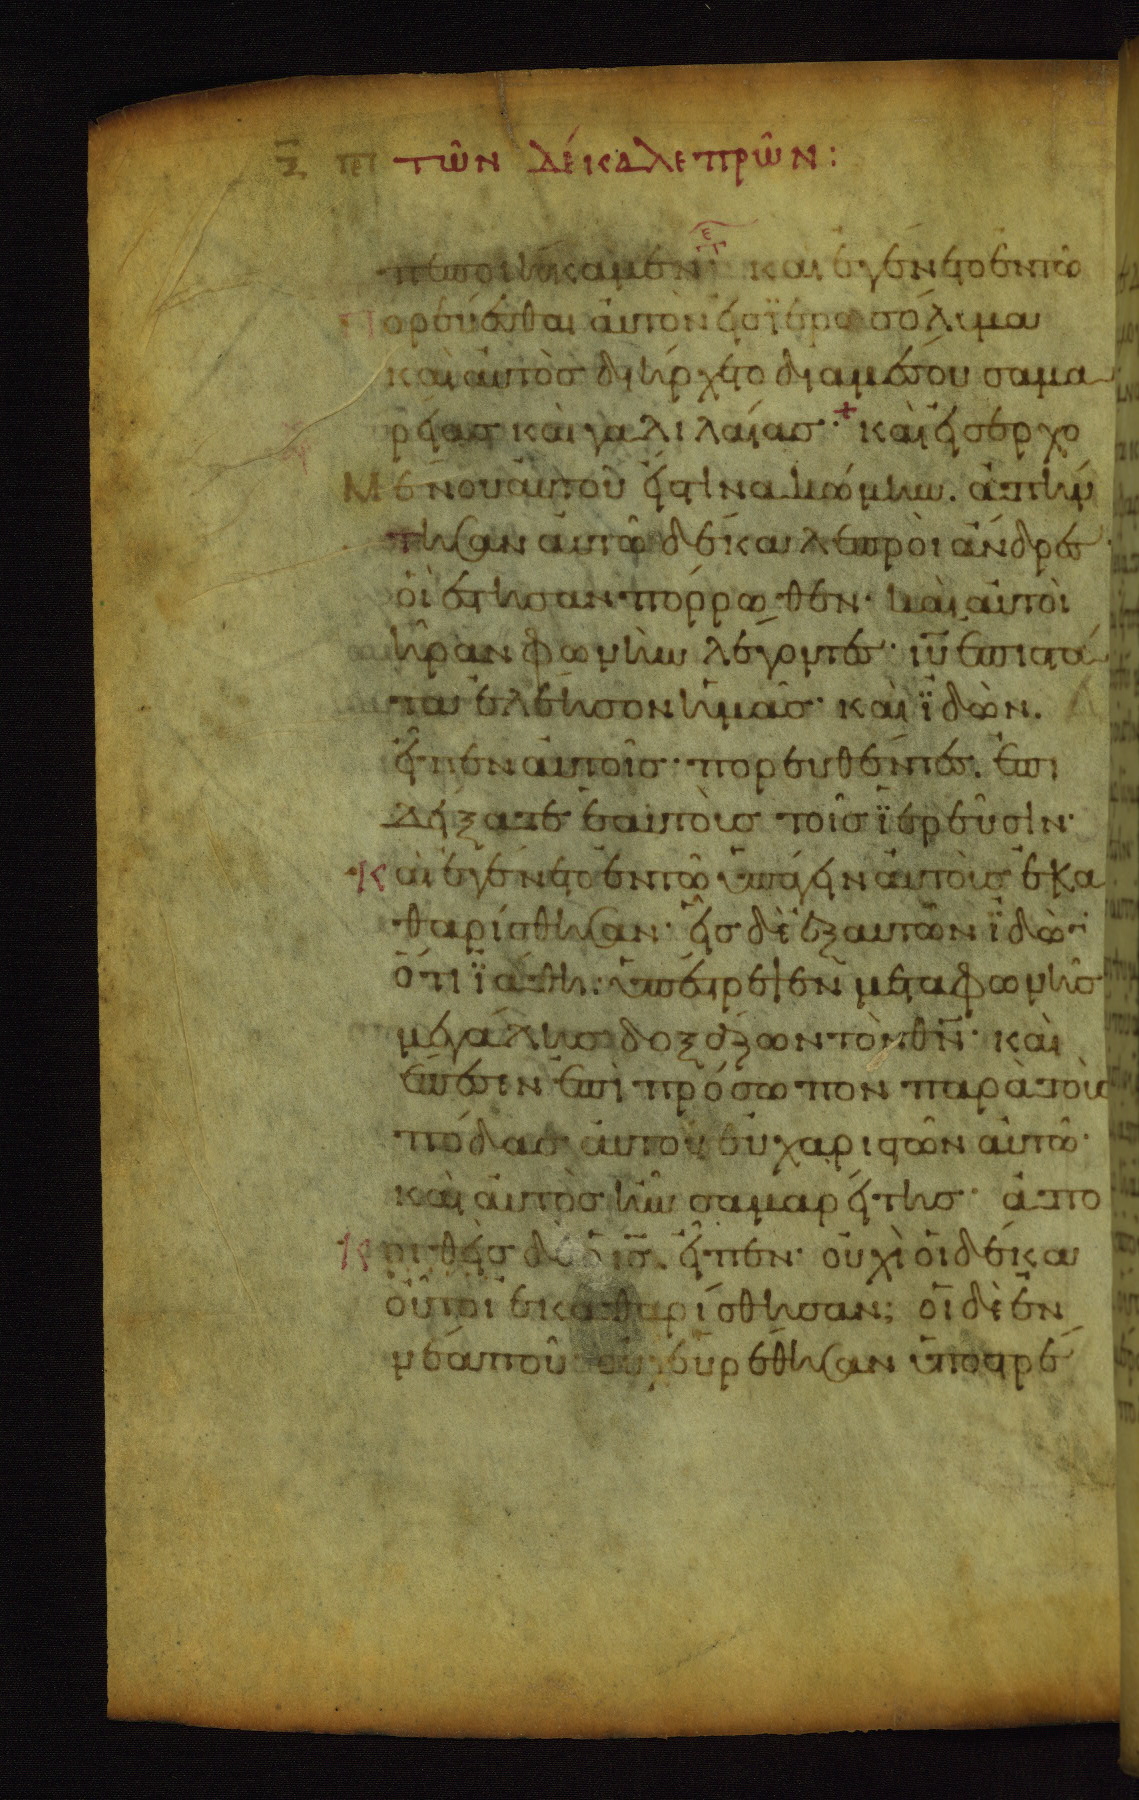 ξ̄ πε τῶν δέκα λεπρῶν:
πεποιήκαμεν· καὶ ἐγένετο ἐν τῷ
πορεύεσθαι αὐτὸν εἰς ϊερουσόλιμα
καὶ αὐτὸς διήρχετο διαμέσου σαμα
ρείας καὶ γαλιλαίας· + καὶ εἰσερχο
Μένου αὐτοῦ εἴς τινα κώμην. ἀπήν
τησαν αὐτῷ δέκα λεπροὶ ἄνδρες·
οἳ ἔστησαν πόρρωθεν· καὶ αὐτοὶ
ἦραν φωνὴν λέγοντες· ιῦ ἐπιστά
τα ἐλέησον ἡμᾶς· καὶ ϊδὼν.
εἶπεν αὐτοῖς· πορευθέντες. ἐπι
δείξατε ἑαυτοὺς τοῖς ϊερεῦσιν·
Καὶ ἐγένετο ἐν τῷ ὑπάγειν αὐτοὺς ἐκα
θαρίσθησαν· εἷς δὲ ἐξ αὐτῶν ϊδὼν
ὅτι ϊάθη· ὑπέστρεψεν μετὰ φωνῆς
μεγάλης δοξάζων τὸν θν̄· καὶ
ἔπεσεν ἐπὶ πρόσωπον παρὰ τοὺς
πόδας αὐτοῦ εὐχαριστῶν αὐτῷ·
καὶ αὐτὸς ἦν σαμαρείτης· ἀπο
Κριθεὶς δὲ ὁ ις̄. εἶπεν· οὐχὶ οἱ δέκα
οὗτοι ἐκαθαρίσθησαν; οἱ δὲ ἐν
νέα ποῦ οὐχ εὑρέθησαν ὑποστρέ